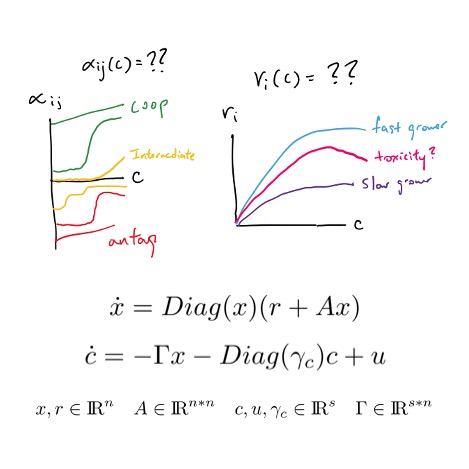 αij(c) = ??
ri(c) = ??
αij
coop
Intermediate
c
antag
ri
fast grower
toxicity?
slow grower
c
ẋ = Diag(x)(r + Ax)
ċ = −Γx − Diag(γ_c)c + u
x, r ∈ ℝ^n  A ∈ ℝ^{n*n}  c, u, γ_c ∈ ℝ^s  Γ ∈ ℝ^{s*n}